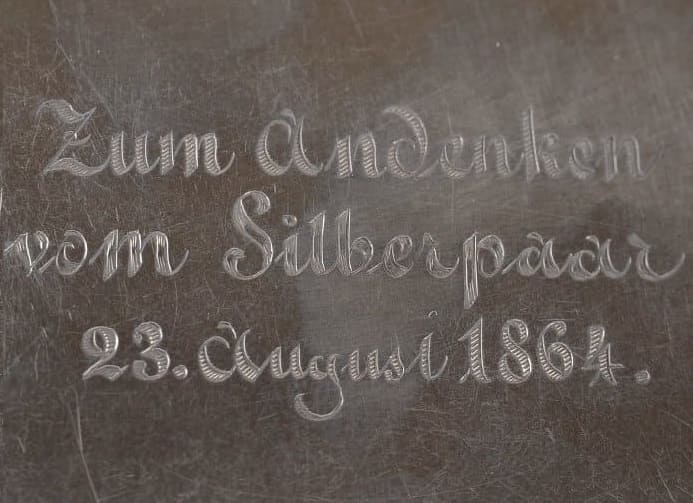 Zum Andenken
vom Silberpaar
23. August 1864.